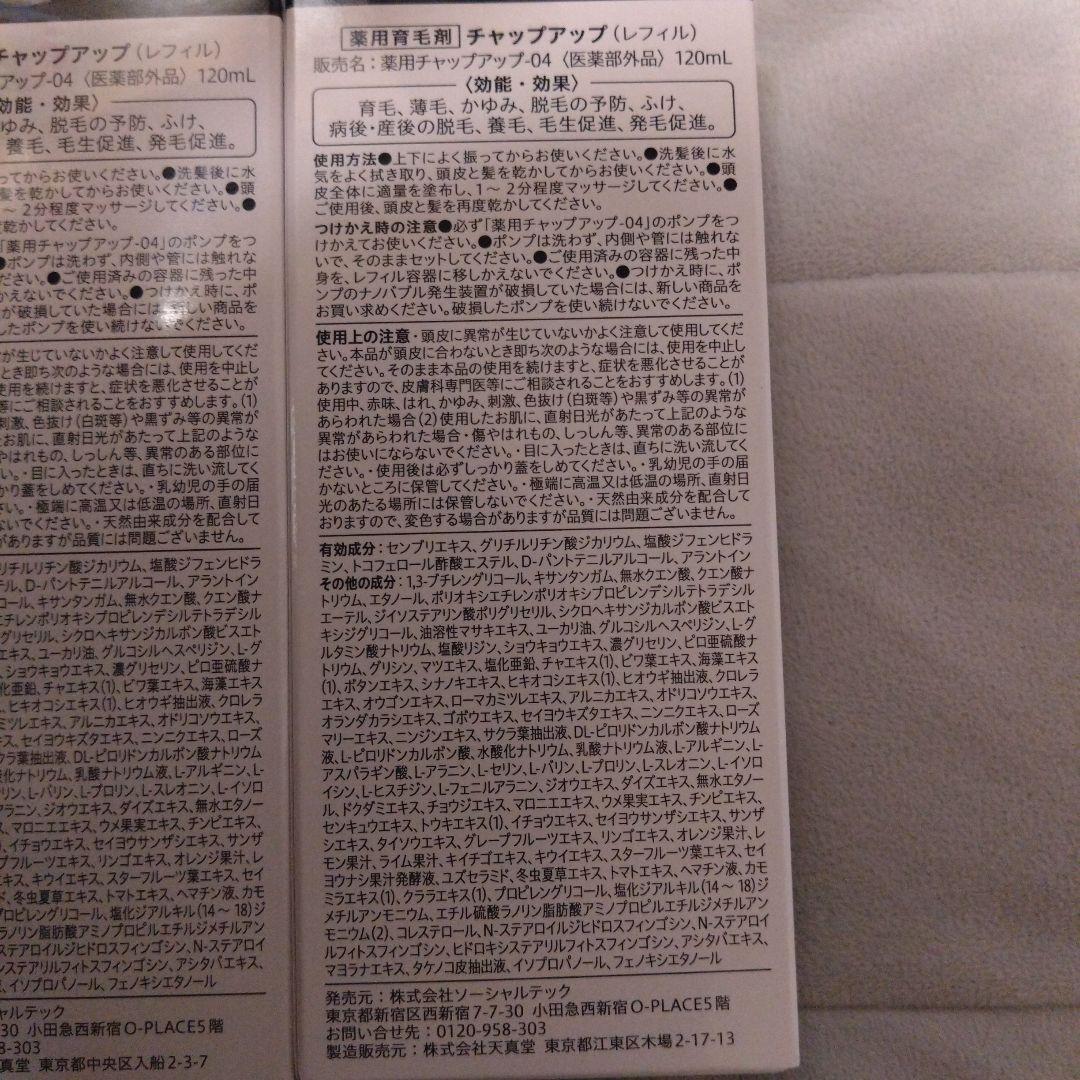 チャップアップ（レフィル）
アップ-04〈医薬部外品〉120mL
効能・効果〉
ゆみ、脱毛の予防、ふけ、
養毛、毛生促進、発毛促進。
ってからお使いください。●洗髪後に水
髪を乾かしてからお使いください。●頭
～2分程度マッサージしてください。●
度乾かしてください。
「薬用チャップアップ-04」のポンプをつ
●ポンプは洗わず、内側や管には触れな
ださい。●ご使用済みの容器に残った中
かえないでください。●つけかえ時に、ポ
が破損していた場合には、新しい商品を
したポンプを使い続けないでください。
が生じていないかよく注意して使用してくだ
とき即ち次のような場合には、使用を中止し
使用を続けますと、症状を悪化させることが
等にご相談されることをおすすめします。(1)
刺激、色抜け(白斑等)や黒ずみ等の異常が
お肌に、直射日光があたって上記のような
やはれもの、しっしん等、異常のある部位に
い。・目に入ったときは、直ちに洗い流してく
かり蓋をしめてください。・乳幼児の手の届
さい。・極端に高温又は低温の場所、直射日
ないでください。・天然由来成分を配合して
がありますが品質には問題ございません。
リチルリチン酸ジカリウム、塩酸ジフェンヒドラ
テル、D-パントテニルアルコール、アラントイン
コール、キサンタンガム、無水クエン酸、クエン酸ナ
エチレンポリオキシプロピレンデシルテトラデシル
グリセリル、シクロヘキサンジカルボン酸ビスエト
エキス、ユーカリ油、グルコシルヘスペリジン、L-グ
、ショウキョウエキス、濃グリセリン、ピロ亜硫酸ナ
化亜鉛、チャエキス(1)、ビワ葉エキス、海藻エキス
、ヒキオコシエキス(1)、ヒオウギ抽出液、クロレラ
ミツレエキス、アルニカエキス、オドリコソウエキス、
キス、セイヨウキズタエキス、ニンニクエキス、ローズ
クラ葉抽出液、DL-ピロリドンカルボン酸ナトリウム
酸化ナトリウム、乳酸ナトリウム液、L-アルギニン、L-
リン、L-バリン、L-プロリン、L-スレオニン、L-イソロ
アラニン、ジオウエキス、ダイズエキス、無水エタノー
ス、マロニエエキス、ウメ果実エキス、チンピエキス、
、イチョウエキス、セイヨウサンザシエキス、サンザ
プフルーツエキス、リンゴエキス、オレンジ果汁、レ
エキス、キウイエキス、スターフルーツ葉エキス、セイ
ド、冬虫夏草エキス、トマトエキス、ヘマチン液、カモ
プロピレングリコール、塩化ジアルキル(14～18)ジ
ラノリン脂肪酸アミノプロピルエチルジメチルアン
ステアロイルジヒドロスフィンゴシン、N-ステアロイ
システアリルフィトスフィンゴシン、アシタバエキス、
、イソプロパノール、フェノキシエタノール
シャルテック
-30 小田急西新宿O-PLACE5階
8-303
真堂 東京都中央区入船2-3-7
薬用育毛剤 チャップアップ（レフィル）
販売名：薬用チャップアップ-04〈医薬部外品〉120mL
〈効能・効果〉
育毛、薄毛、かゆみ、脱毛の予防、ふけ、
病後・産後の脱毛、養毛、毛生促進、発毛促進。
使用方法●上下によく振ってからお使いください。●洗髪後に水
気をよく拭き取り、頭皮と髪を乾かしてからお使いください。●頭
皮全体に適量を塗布し、1～2分程度マッサージしてください。●
ご使用後、頭皮と髪を再度乾かしてください。
つけかえ時の注意●必ず「薬用チャップアップ-04」のポンプをつ
けかえてお使いください。●ポンプは洗わず、内側や管には触れな
いで、そのままセットしてください。●ご使用済みの容器に残った中
身を、レフィル容器に移しかえないでください。●つけかえ時に、ポ
ンプのナノバブル発生装置が破損していた場合には、新しい商品を
お買い求めください。破損したポンプを使い続けないでください。
使用上の注意・頭皮に異常が生じていないかよく注意して使用してくだ
さい。本品が頭皮に合わないとき即ち次のような場合には、使用を中止し
てください。そのまま本品の使用を続けますと、症状を悪化させることが
ありますので、皮膚科専門医等にご相談されることをおすすめします。(1)
使用中、赤味、はれ、かゆみ、刺激、色抜け(白斑等)や黒ずみ等の異常が
あらわれた場合(2)使用したお肌に、直射日光があたって上記のような
異常があらわれた場合・傷やはれもの、しっしん等、異常のある部位に
はお使いにならないでください。・目に入ったときは、直ちに洗い流してく
ださい。・使用後は必ずしっかり蓋をしめてください。・乳幼児の手の届
かないところに保管してください。・極端に高温又は低温の場所、直射日
光のあたる場所には保管しないでください。・天然由来成分を配合して
おりますので、変色する場合がありますが品質には問題ございません。
有効成分：センブリエキス、グリチルリチン酸ジカリウム、塩酸ジフェンヒドラ
ミン、トコフェロール酢酸エステル、D-パントテニルアルコール、アラントイン
その他の成分：1,3-ブチレングリコール、キサンタンガム、無水クエン酸、クエン酸ナ
トリウム、エタノール、ポリオキシエチレンポリオキシプロピレンデシルテトラデシル
エーテル、ジイソステアリン酸ポリグリセリル、シクロヘキサンジカルボン酸ビスエト
キシジグリコール、油溶性マサキエキス、ユーカリ油、グルコシルヘスペリジン、L-グ
ルタミン酸ナトリウム、塩酸リジン、ショウキョウエキス、濃グリセリン、ピロ亜硫酸ナ
トリウム、グリシン、マツエキス、塩化亜鉛、チャエキス(1)、ビワ葉エキス、海藻エキス
(1)、ボタンエキス、シナノキエキス、ヒキオコシエキス(1)、ヒオウギ抽出液、クロレラ
エキス、オウゴンエキス、ローマカミツレエキス、アルニカエキス、オドリコソウエキス、
オランダカラシエキス、ゴボウエキス、セイヨウキズタエキス、ニンニクエキス、ローズ
マリーエキス、ニンジンエキス、サクラ葉抽出液、DL-ピロリドンカルボン酸ナトリウム
液、L-ピロリドンカルボン酸、水酸化ナトリウム、乳酸ナトリウム液、L-アルギニン、L-
アスパラギン酸、L-アラニン、L-セリン、L-バリン、L-プロリン、L-スレオニン、L-イソロ
イシン、L-ヒスチジン、L-フェニルアラニン、ジオウエキス、ダイズエキス、無水エタノー
ル、ドクダミエキス、チョウジエキス、マロニエエキス、ウメ果実エキス、チンピエキス、
センキュウエキス、トウキエキス(1)、イチョウエキス、セイヨウサンザシエキス、サンザ
シエキス、タイソウエキス、グレープフルーツエキス、リンゴエキス、オレンジ果汁、レ
モン果汁、ライム果汁、キイチゴエキス、キウイエキス、スターフルーツ葉エキス、セイ
ヨウナシ果汁発酵液、ユズセラミド、冬虫夏草エキス、トマトエキス、ヘマチン液、カモ
ミラエキス(1)、クララエキス(1)、プロピレングリコール、塩化ジアルキル(14～18)ジ
メチルアンモニウム、エチル硫酸ラノリン脂肪酸アミノプロピルエチルジメチルアン
モニウム(2)、コレステロール、N-ステアロイルジヒドロスフィンゴシン、N-ステアロイ
ルフィトスフィンゴシン、ヒドロキシステアリルフィトスフィンゴシン、アシタバエキス、
マヨラナエキス、タケノコ皮抽出液、イソプロパノール、フェノキシエタノール
発売元：株式会社ソーシャルテック
東京都新宿区西新宿7-7-30 小田急西新宿O-PLACE5階
お問い合せ先：0120-958-303
製造販売元：株式会社天真堂 東京都江東区木場2-17-13